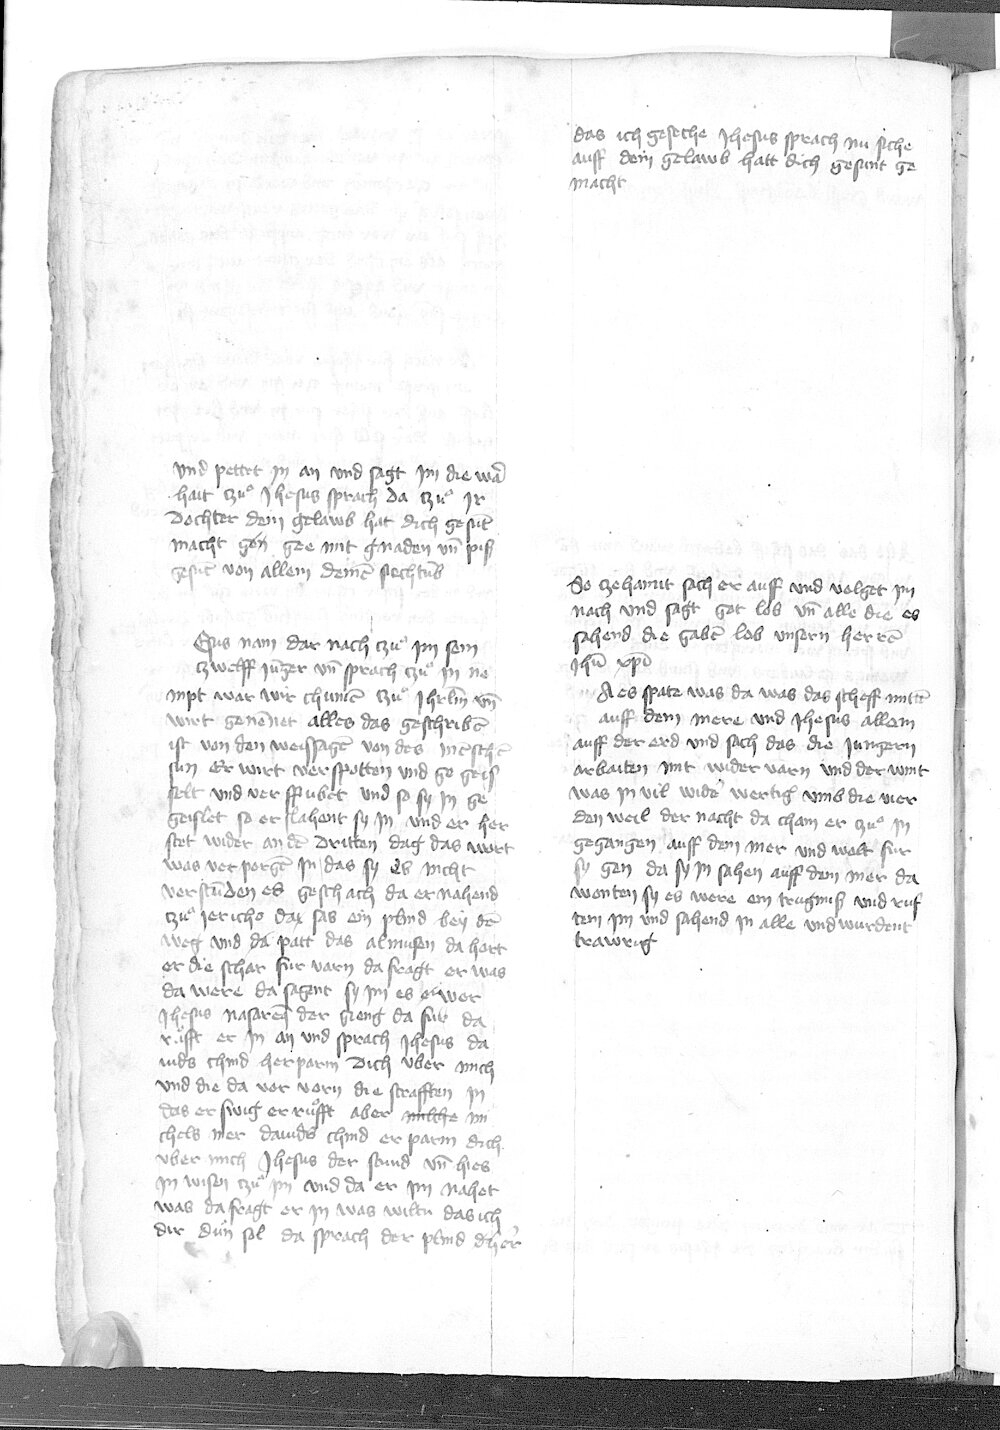 und pettet in an und sagt im die war
hait czuͦ Jhesus sprach da czuͦ ir
Dochter dein gelawb hat dich gesūt
macht gen gee mit gnaden vn̄ piß
gesūt von allem deinē siechtūb
Esus nam dar nach czuͦ im sein
czwelff iūger vn̄ sprach czuͦ in ne
mpt war wir chumē czuͦ Jhrlm̄ vn̄
wirt genēnet alles das geschribē
ist von den weissagē von des mēschē
sun Er wirt verspotten und ge geis
selt und ver spubet und so sy in ge
geislet so er slahent sy in und er her
stet wider an dē dritten dag das wort
was verporgē in das sy es nicht
verstūden es geschach da er nahend
czuͦ Jericho da sas ein plind bey dē
weg und da patt das almusen da hort
er die schar fur varn da fragt er was
da were da sagent sy im es wer
Jhesus nasareꝰ der gieng da fur da
ruͦfft er in an und sprach Jhesus da
uids chind herparm Dich vber mich
und die da vor vorn die strafften in
das er swig er ruͦfft aber michhe mi
chels mer dauids chind er parm dich
vber mich Jhesus der stuͦnd vn̄ hies
in wisen czuͦ im und da er im nahet
was da fragt er in was wiltu das ich
dir duͦn sol da sprach der plind o her
das ich gesehe Jhesus sprach nu siche
auff dein gelawb hatt dich gesunt ge
macht
So czehannt sach er auff und volget im
nach und sagt got lob vn̄ alle die es
sahend die gabē lob unserm herrē
Jhū xpī
A es spate was da was das scheff mittē
auff dem mere und Jhesus allein
auff der erd und sach das die Jungern
arbaiten mit wider varn und der wint
was in vil wider wertig vmb die vier
den weil der nacht da cham er czuͦ in
gegangen auff dem mer und wolt fur
sy gen da sy in sahen auff dem mer da
wonten sy es were ein trugniß und ruf
tem im und sahend in alle und wurdent
trawrig